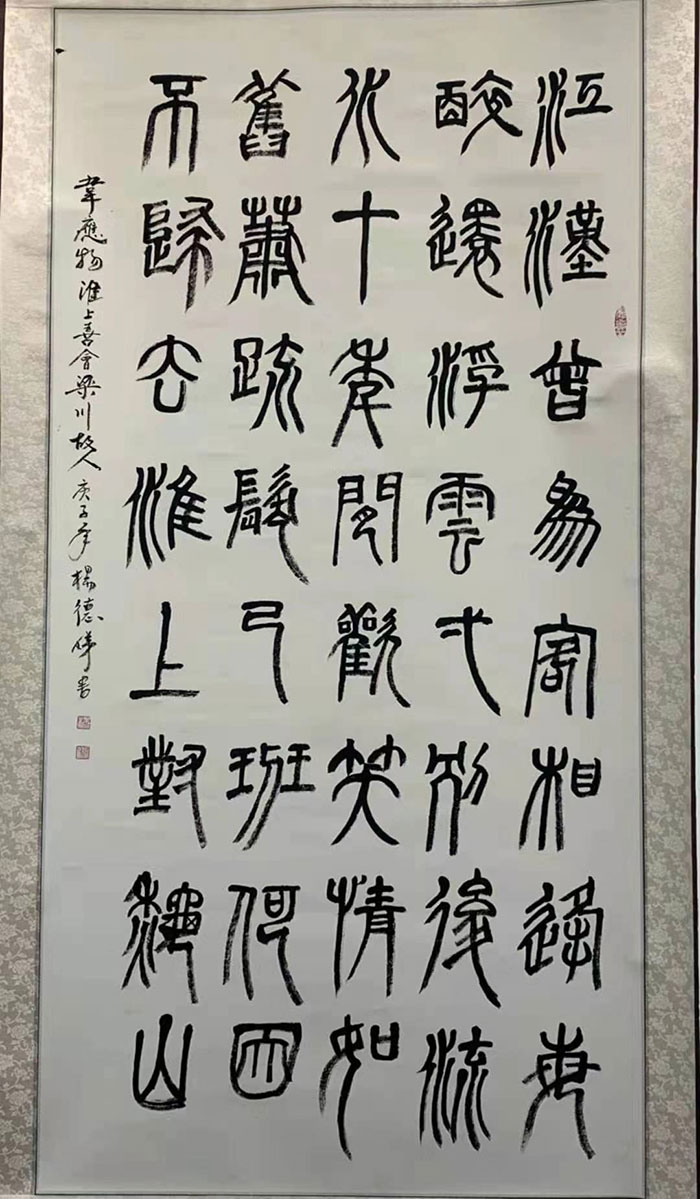 江漢曾為客相逢每
醉還浮雲弌別後流
水十年間歡笑情如
舊蕭疏鬢已班何因
不歸去淮上對龝山
韋應物淮上喜會梁川故人 庚子年 楊德書